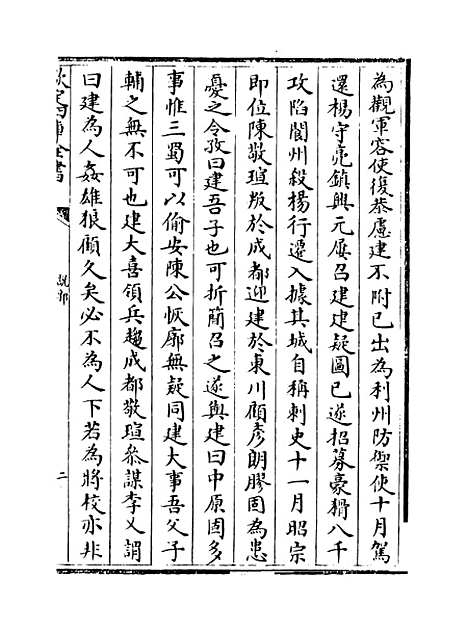 為觀軍容使復恭慮建不附已出為利州防禦使十月駕
還楊守亮鎮興元屢召建建疑圖已遂招募豪猾八千
攻陷閬州殺楊行遷入據其城自稱刺史十一月昭宗
即位陳敬瑄叛於成都迎建於東川顧彥朗膠固為患
憂之令孜曰建吾子也可折簡召之遂與建曰中原固多
事惟三蜀可以偷安陳公恢廓無疑同建大事吾父子
輔之無不可也建大喜領兵趨成都敬瑄叅謀李乂謂
曰建為人姦雄狼顧久矣必不為人下若為將校亦非
欽定四庫全書
説郛
二